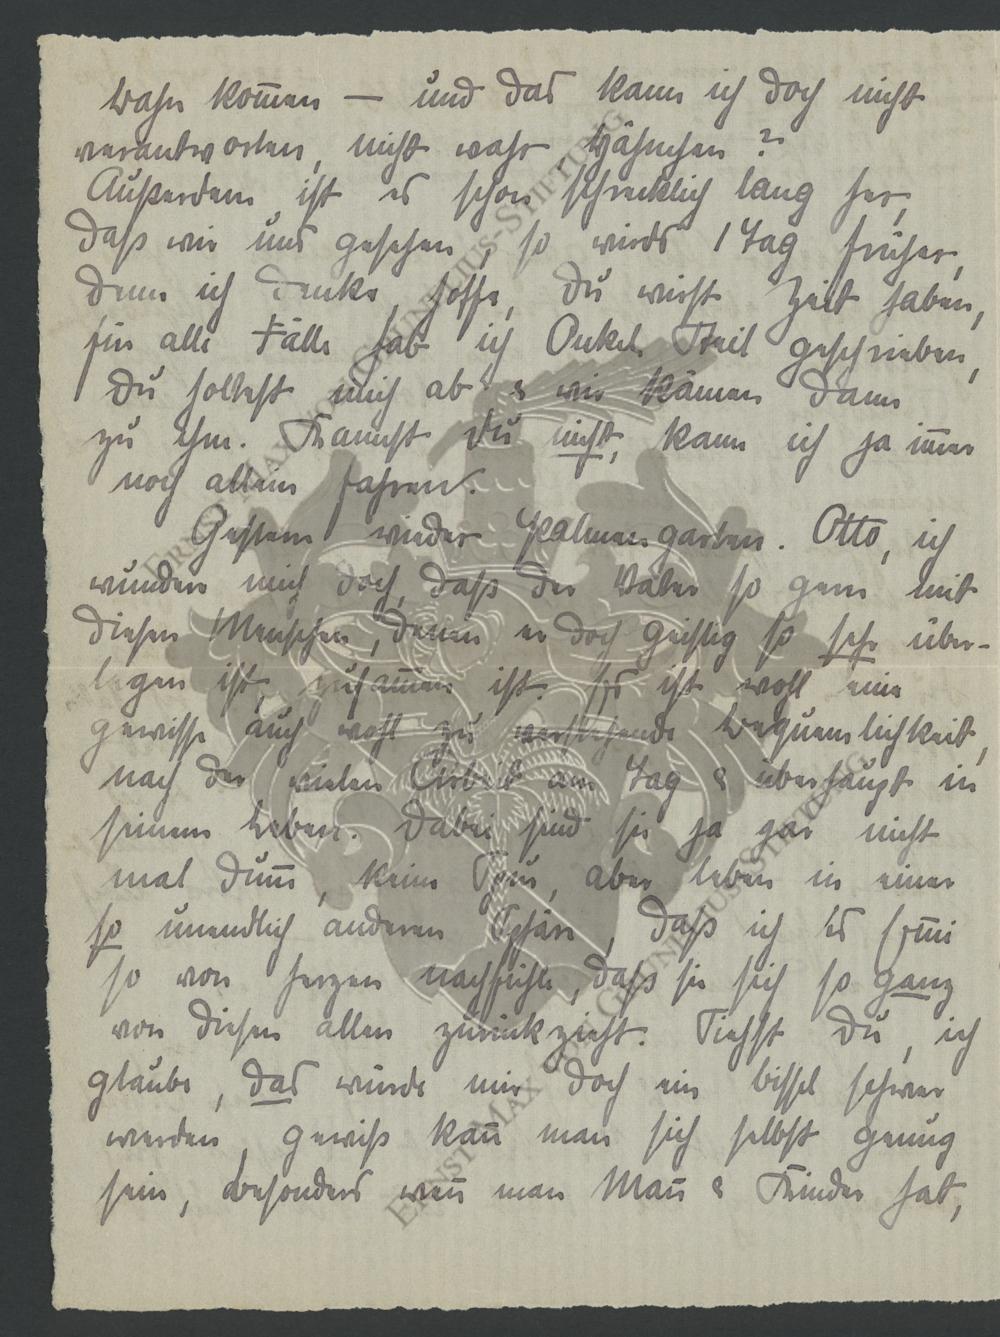 Bahn kom̅en — und das kann ich doch nicht
verantworten, nicht wahr, Hähnchen?
Außerdem ist es schon schrecklich lang her,
daß wir uns gesehen, so wirds 1 Tag früher,
denn ich denke, hoffe, Du wirst Zeit haben,
für alle Fälle hab ich Onkel Theil geschrieben,
Du holtest mich ab & wir kämen dann
zu ihm. Kannst Du nicht, kann ich ja im̅er
noch allein fahren.
Gestern wieder Palmengarten. Otto, ich
wundere mich doch, daß der Vater so gern mit
diesen Menschen, denen er doch geistig so sehr über-
legen ist, zusam̅en ist. Es ist wohl eine
gewisse auch wohl zu verstehende Bequemlichkeit,
nach der vielen Arbeit am Tag & überhaupt in
seinem Leben. Dabei sind sie ja gar nicht
mal dum̅, keine Spur, aber leben in einer
so unendlich anderen Sphäre, daß ich es Em̅i
so von Herzen nachfühle, daß sie sich so ganz
von diesen allen zurückzieht. Siehst Du, ich
glaube, das würde mir doch ein bissel schwer
werden, gewiß kan̅ man sich selbst genug
sein, besonders wen̅ man Man̅ & Kinder hat,
ERNST MAX VON GRUNELIUS-STIFTUNG
ERNST MAX VON GRUNELIUS-STIFTUNG